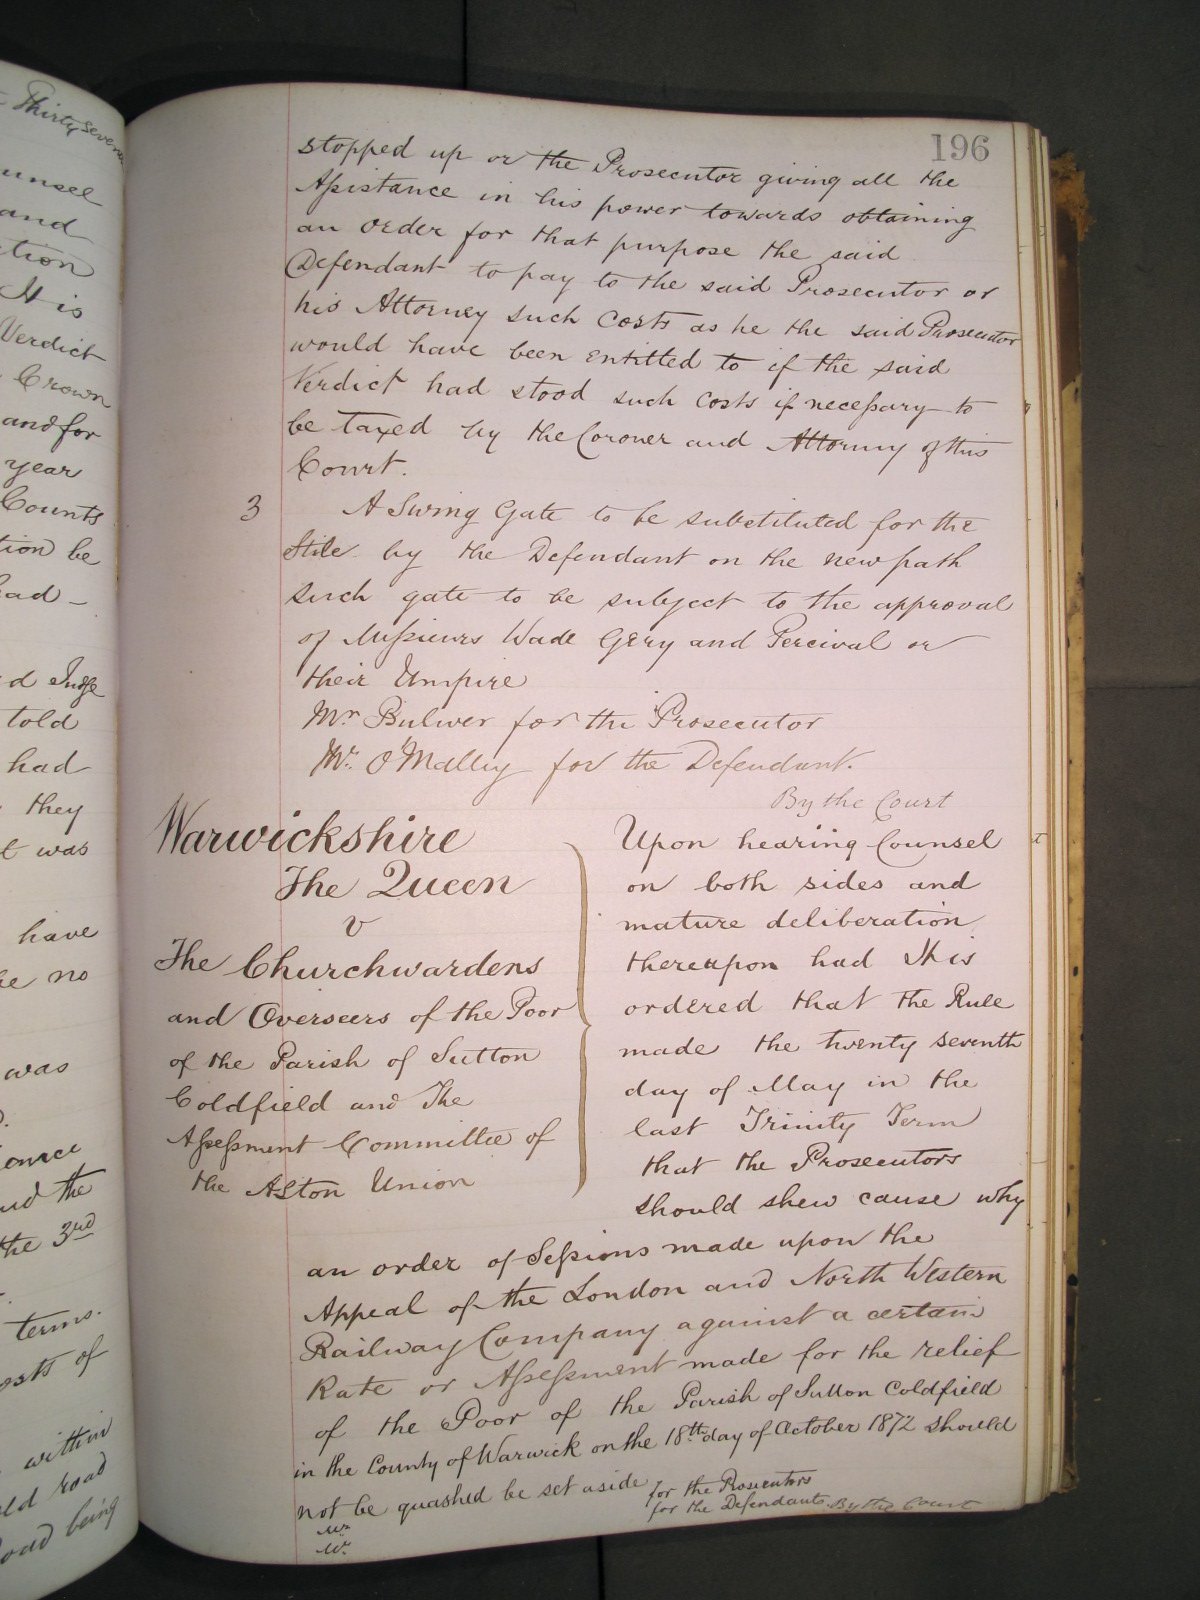 Thirty seven
unsel
and
ction
It is
Verdict
Crown
and for
year
Counts
tion be
had -
d Judge
told
had
they
t was
have
be no
was
ence
nd the
the 3rd
terms.
osts of
within
old road
road being
196
stopped up or the Prosecutor giving all the
Assistance in his power towards obtaining
an order for that purpose the said
Defendant to pay to the said Prosecutor or
his Attorney such costs as he the said Prosecutor
would have been entitled to if the said
Verdict had stood such costs if necessary to
be taxed by the Coroner and Attorney of this
Court.
3 A Swing Gate to be substituted for the
Stile by the Defendant on the new path
such gate to be subject to the approval
of Messieurs Wade Gery and Percival or
their Umpire
Mr Bulwer for the Prosecutor
Mr. O'Malley for the Defendant.
By the Court
Warwickshire
The Queen
v
The Churchwardens
and Overseers of the Poor
of the Parish of Sutton
Coldfield and The
Assessment Committee of
the Aston Union
Upon hearing Counsel
on both sides and
mature deliberation
thereupon had It is
ordered that the Rule
made the twenty seventh
day of May in the
last Trinity Term
that the Prosecutors
should shew cause why
an order of Sessions made upon the
Appeal of the London and North Western
Railway Company against a certain
Rate or Assessment made for the relief
of the Poor of the Parish of Sutton Coldfield
in the County of Warwick on the 18th day of October 1872 should
not be quashed be set aside
Mr. for the Prosecutors
Mr. for the Defendants. By the Court